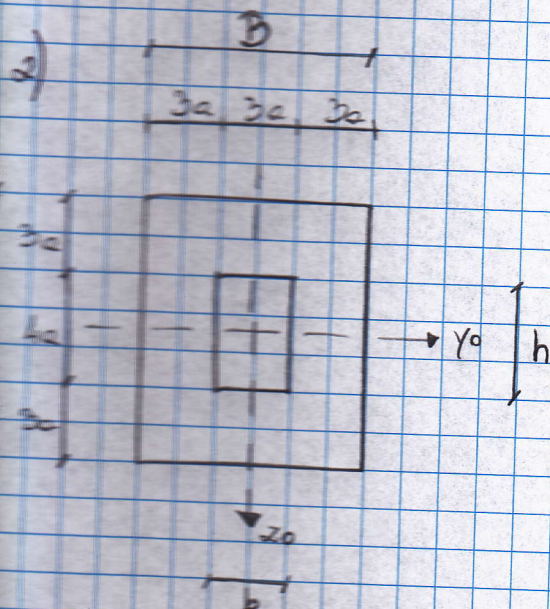 2)
B
3a 3a 3a
3a
4a
3a
y0
h
z0
b